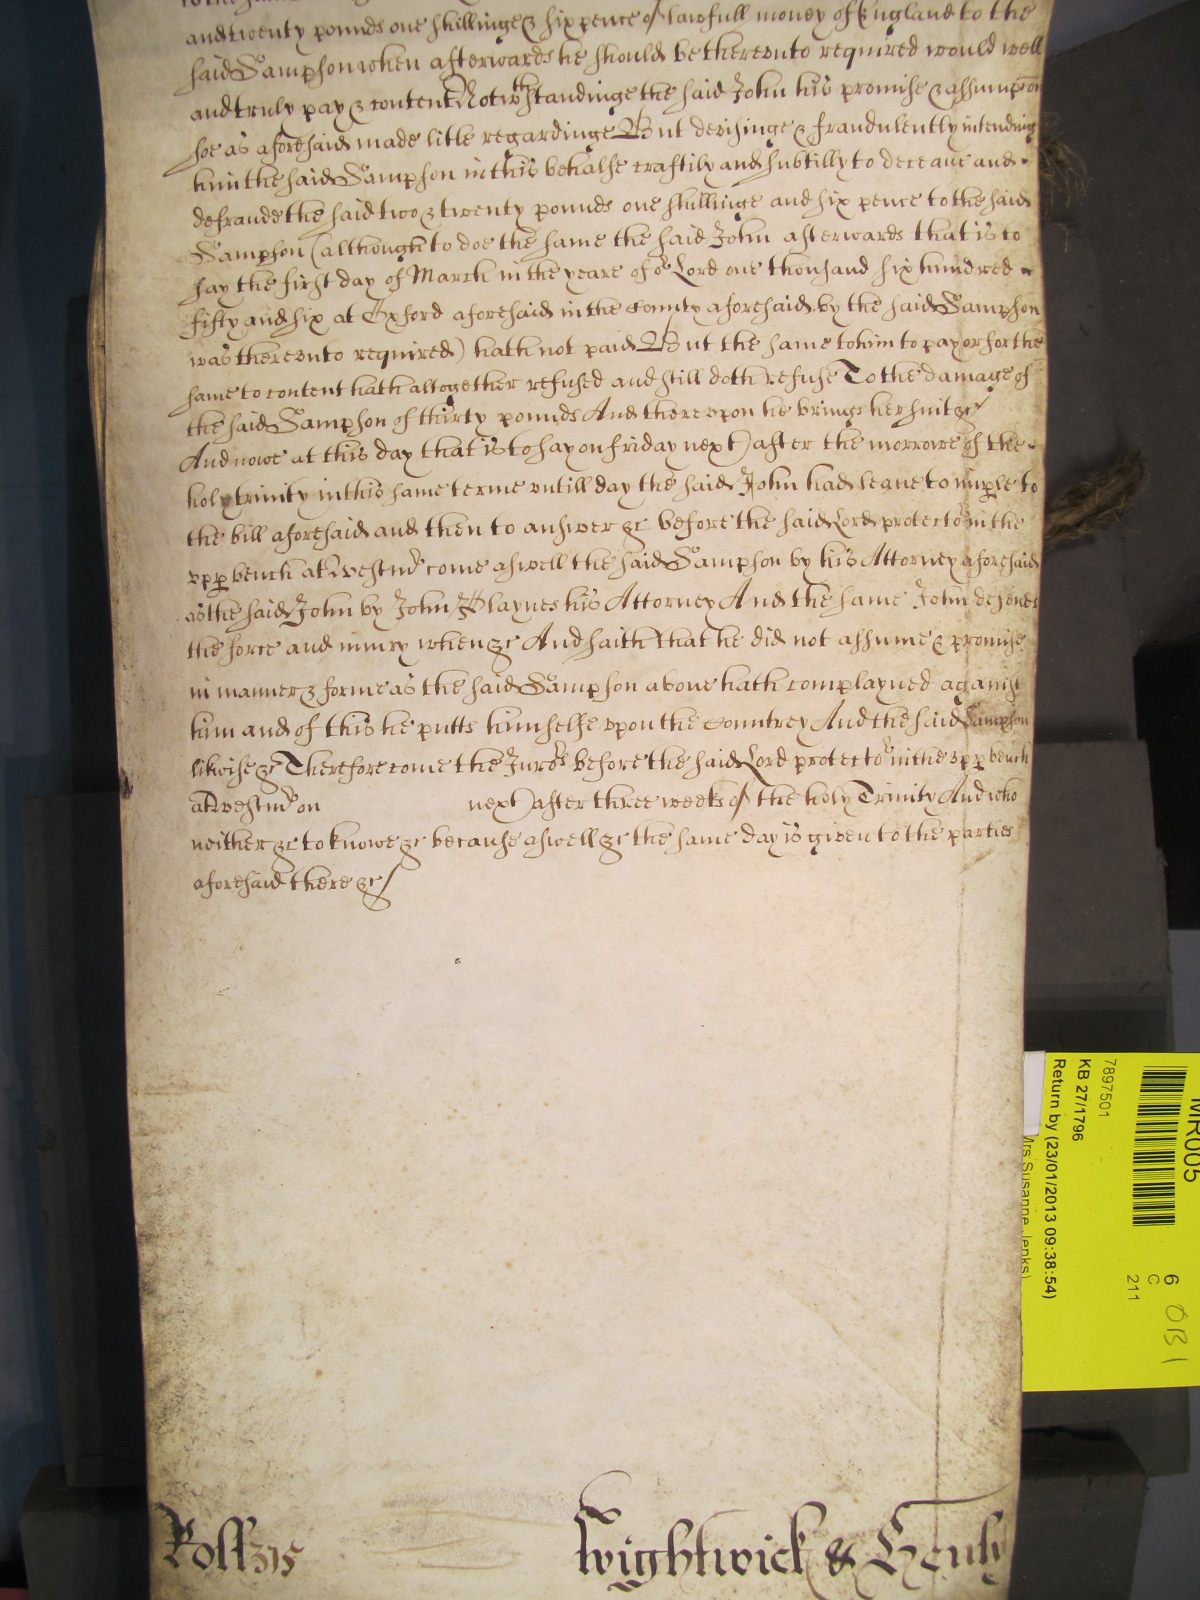 and twenty pounds one shillinge & six pence of lawfull money of England to the
said Sampson when afterwards he should be thereunto required would well
and truly pay & content Notwthstandinge the said John his promise & assumpcon
soe as aforesaid made litle regardinge But devisinge & fraudulently intendinge
him the said Sampson in this behalfe craftily and subtilly to deceave and
defraude the said two & twenty pounds one shillinge and six pence to the said
Sampson (although to doe the same the said John afterwards that is to
say the first day of March in the yeare of or Lord one thousand six hundred
fifty and six at Oxford aforesaid in the County aforesaid by the said Sampson
was thereunto required) hath not paid But the same to him to pay or for the
same to content hath altogether refused and still doth refuse To the damage of
the said Sampson of thirty pounds And thereupon he brings her suit &c
And nowe at this day that is to say on friday next after the morrowe of the
holy trinity in this same terme untill day the said John had leave to imple to
the bill aforesaid and then to answer &c before the said Lord protector in the
upp bench at Westmr come aswell the said Sampson by his Attorney aforesaid
as the said John by John Blaynes his Attorney And the same John defends
the force and iniury when &c And saith that he did not assume & promise
in manner & forme as the said Sampson above hath complayned against
him and of this he putts himselfe upon the Countrey And the said Sampson
likwise &c Therefore come the Jurors before the said Lord protector in the upp bench
at Westmr on next after three weekes of the holy Trinity And who
neither &c to knowe &c because aswell &c the same day is given to the parties
aforesaid there &c
Roll 315 Wightwick & Henly
MR005
7897501
KB 27/1796
Return by (23/01/2013 09:38:54)
Mrs Susanne Jenks)
6
C
211
OB 1